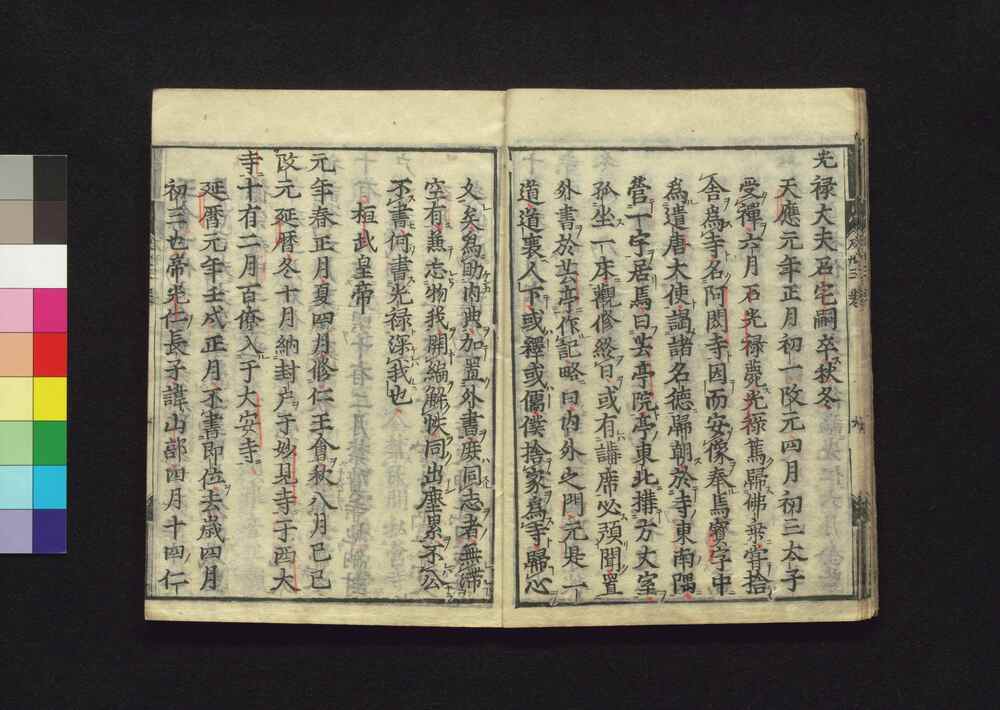 光祿大夫石宅嗣卒秋冬
天應元年正月初一改元四月初三太子
受禪六月石光祿薨光祿篤歸佛乗甞捨
舎為寺名阿閦寺因而安像奉馬寳字中
為遣唐大使謁諸名德歸朝於寺東南隅
營一字居焉曰芸亭院亭東北搆方丈室
孤坐一床觀修終日或有講席必預聞置
外書於芸亭作記略曰内外之門元是一
道道襄人下或釋或儒僕捨家為寺歸心
久矣為助内典加置外書庻同志者無滯
空有兼忘物我開編解帙同出塵累不公
不書何書光祿深我也
桓武皇帝
元年春正月夏四月修仁王會秋八月己巳
改元延暦冬十月納封戸于妙見寺于西大
寺十有二月百僚入于大安寺
延暦元年壬戌正月不書即位去歳四月
初三也帝光仁長子諱山部四月十四仁